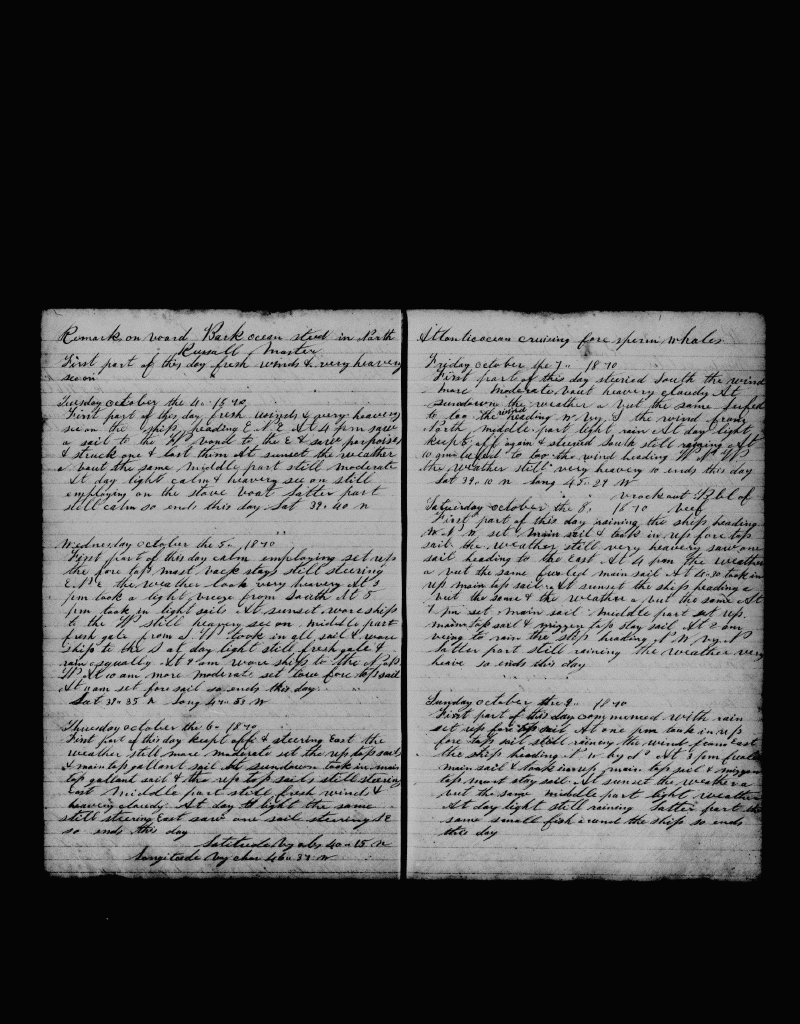 Remark on board Bark ocean sted in North
Rusall Master
First part of this day fresh winds & very heavery
see on
Tuesday october the 4" 1870
First part of this day fresh winds & very heavery
see on the ships heading E N E At 4 pm saw
a sail to the W bond to the E & saw porpoises
& struck one & lost him At sunset the weather
a bout the same middle part still moderate
At day light calm & heavery see on still
employing on the stove boat Latter part
still calm so ends this day Lat 39" 40 n
Wednesday october the 5" 1870
First part of this day calm employing set up
the fore top most back stays still steering
the weather look very heavery At 3
pm took a light breeze from South At 5
pm took in light sails At sunset wore ships
to the W still heavery see on middle part
fresh gale from S. W. took in all sail & wore
ship to the S at day light still fresh gale &
rain squally At 9 am wore ships to the
W At 10 am more moderate set low fore top sail
At 11 am set fore sail so ends this day
Lat 39" 35 n Long 47" 53 W
Thursday october the 6" 1870
First part of this day keept off & steering East the
weather still more moderate set the up top sail
& main top gallant sail At sundown took in main
top gallant sail & the up top sails still steering
East middle part still fresh wind &
heavery cloudy At day light the same
still steering East saw one sail steering SE
so ends this day
Latitude by obs 40" 15 n
Longitude by chro 46" 37 W
Atlantic ocean cruising fore sperm whales
Friday october the 7" 1870
First part of this day steeried South the wind
more moderate but heavery cloudy At
sundown the weather a bout the same lufed
to too the wind heading W by N the wind from
North middle part light rain At day light
keept off again & steered South still raining At
10 am lufed to too the wind heading W N W
the weather still very heavery so ends this day
Lat 39" 10 n Long 45" 29 W
brock out 1 Bbl of
Saturday october the 8" 1870 beef
First part of this day raining the ships heading
W. N. W. set main sail & took in up fore top
sail the weather still very heavery saw one
sail heading to the East At 4 pm the weather
a but the same furled main sail At 4:30 took in
up main top sail At sunset the ship heading a
but the same & the weather a but the same At
7 pm set main sail middle part set up
main top sail & mizzen top stay sail At 2 am
being to rain the ship heading N W by N
latter part still raining the weather very
heave so ends this day
Sunday october the 9" 1870
First part of this day commenced with rain
set up fore top sail At one pm took in up
fore top sail still rainey the wind from East
the ship heading N W by N At 3 pm furled
main sail & took in up main top sail & mizzen
top most stay sail At sunset the weather a
but the same middle part light weather
At day light still raining Latter part the
same small fish around the ship so ends
this day